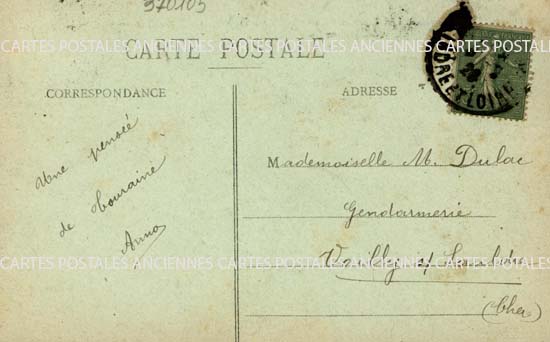 370105
CARTES POSTALES ANCIENNES CARTES POSTALES ANCIENNES CARTES POSTALES ANCIENNES
CARTE POSTALE
CORRESPONDANCE
ADRESSE
INDRE ET LOIRE
Une pensée
de Touraine
Anna
Mademoiselle M. Dulac
Gendarmerie
Vailly s/ Sauldre
(Cher)
CARTES POSTALES ANCIENNES CARTES POSTALES ANCIENNES CARTES POSTALES ANCIENNES